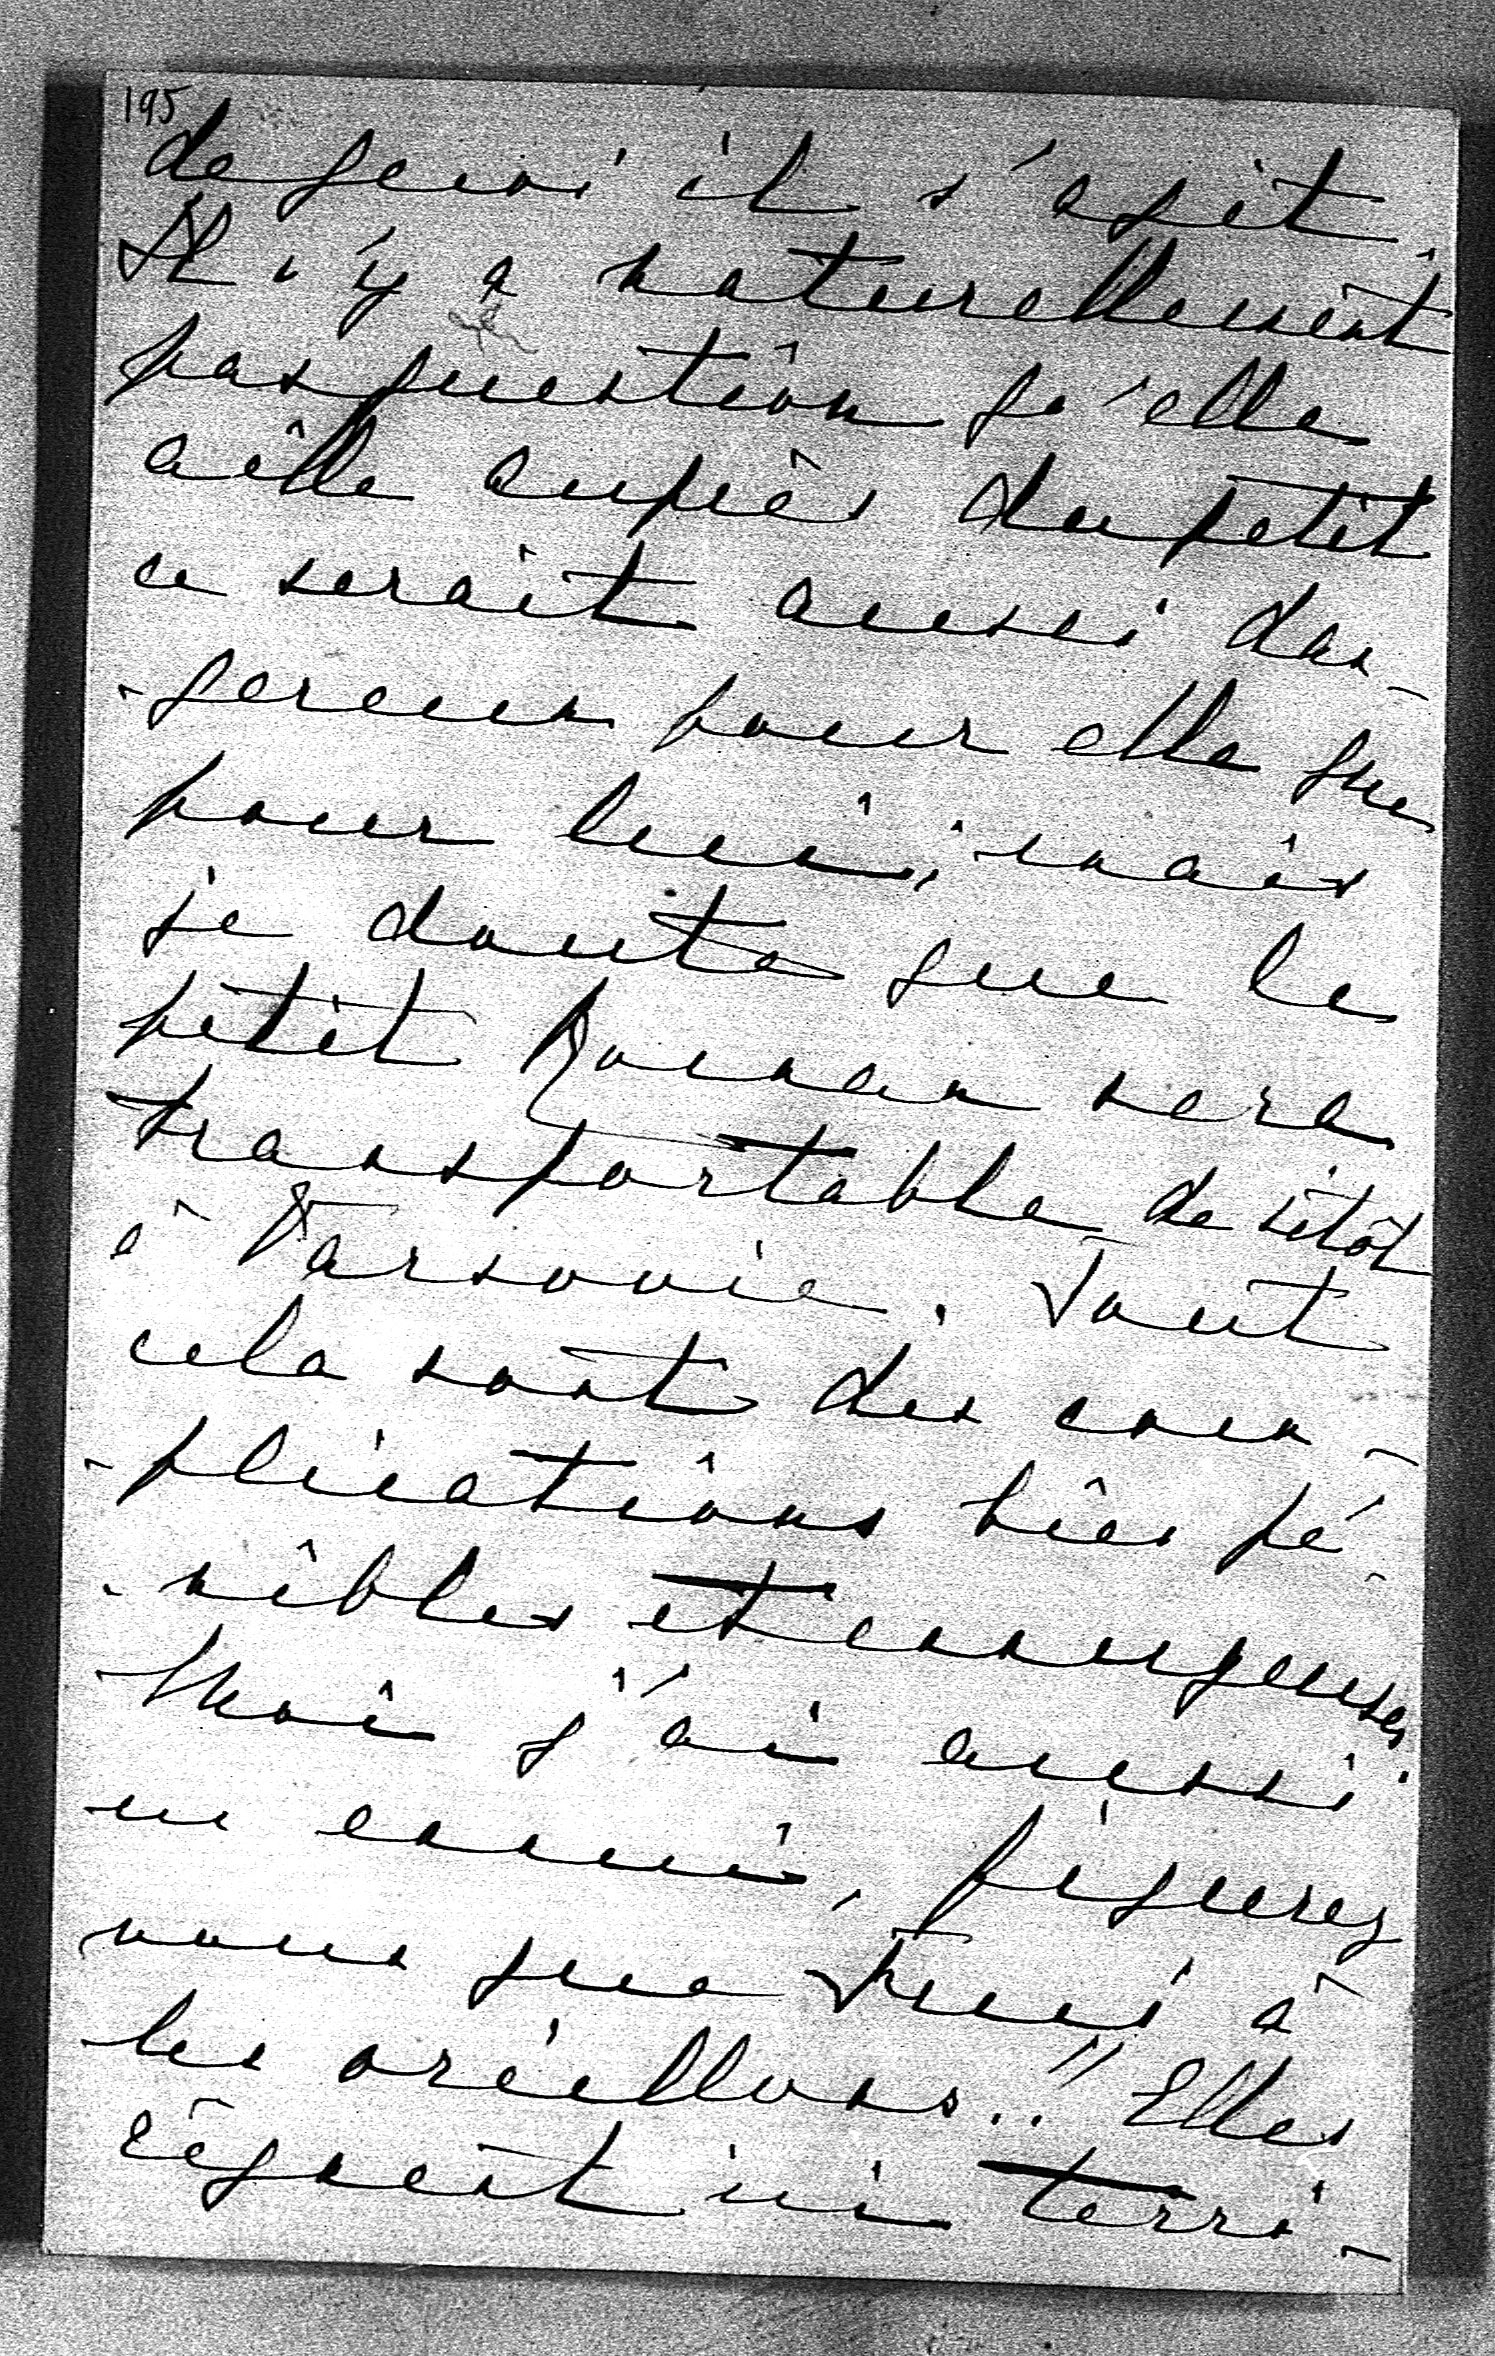 195
de quoi il s'agit.
Il n'y a naturellement
pas question qu'elle
aille auprès du petit
ce serait aussi dan-
-gereux pour elle que
pour lui; mais
je doute que le
petit Roman sera
transportable de sitôt
à Varsovie. Tout
cela sont des com-
-plications bien pé-
-nibles et ennuyeuses
Moi j'ai aussi
un ennui, figurez
vous que a
les oreillons..!! Elles
régnent ici terri-